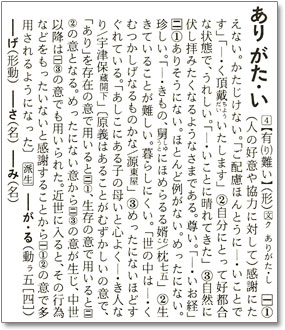 ありがた・い ④【有(り)難い】(形)文ク ありがた・し ㊀①
(人の好意や協力に対して)感謝にた
えない。かたじけない。「ご配慮ほんとうに―・いことで
す」「―・く頂戴ちょうだいいたします」②自分にとって好都合
な状態で、うれしい。「―・いことに晴れてきた」③自然に
伏し拝みたくなるようなさまである。尊い。「―・いお経」
㊁①ありそうにない。ほとんど例がない。めったにない。
珍しい。「―・きもの、舅しうとにほめらるる婿/枕七五」②生
きていることが難しい。暮らしにくい。「世の中は―・く
むつかしげなるものかな/源東屋」③めったにないほどす
ぐれている。「あしこにある子の母いと心よく―・き人な
り/宇津保蔵開下」〔原義はあることがむずかしいの意で、
「あり」を存在の意で用いると㊁①、生存の意で用いると㊁
②の意となる。めったにない意から㊁③の意が生じ、中世
以降は㊀③の意でも用いられた。近世に入ると、その行為
などをもったいないと感謝することから㊀①②の意で多
用されるようになった〕派生―が・る(動ラ五[四])
―げ(形動)―さ(名)―み(名)